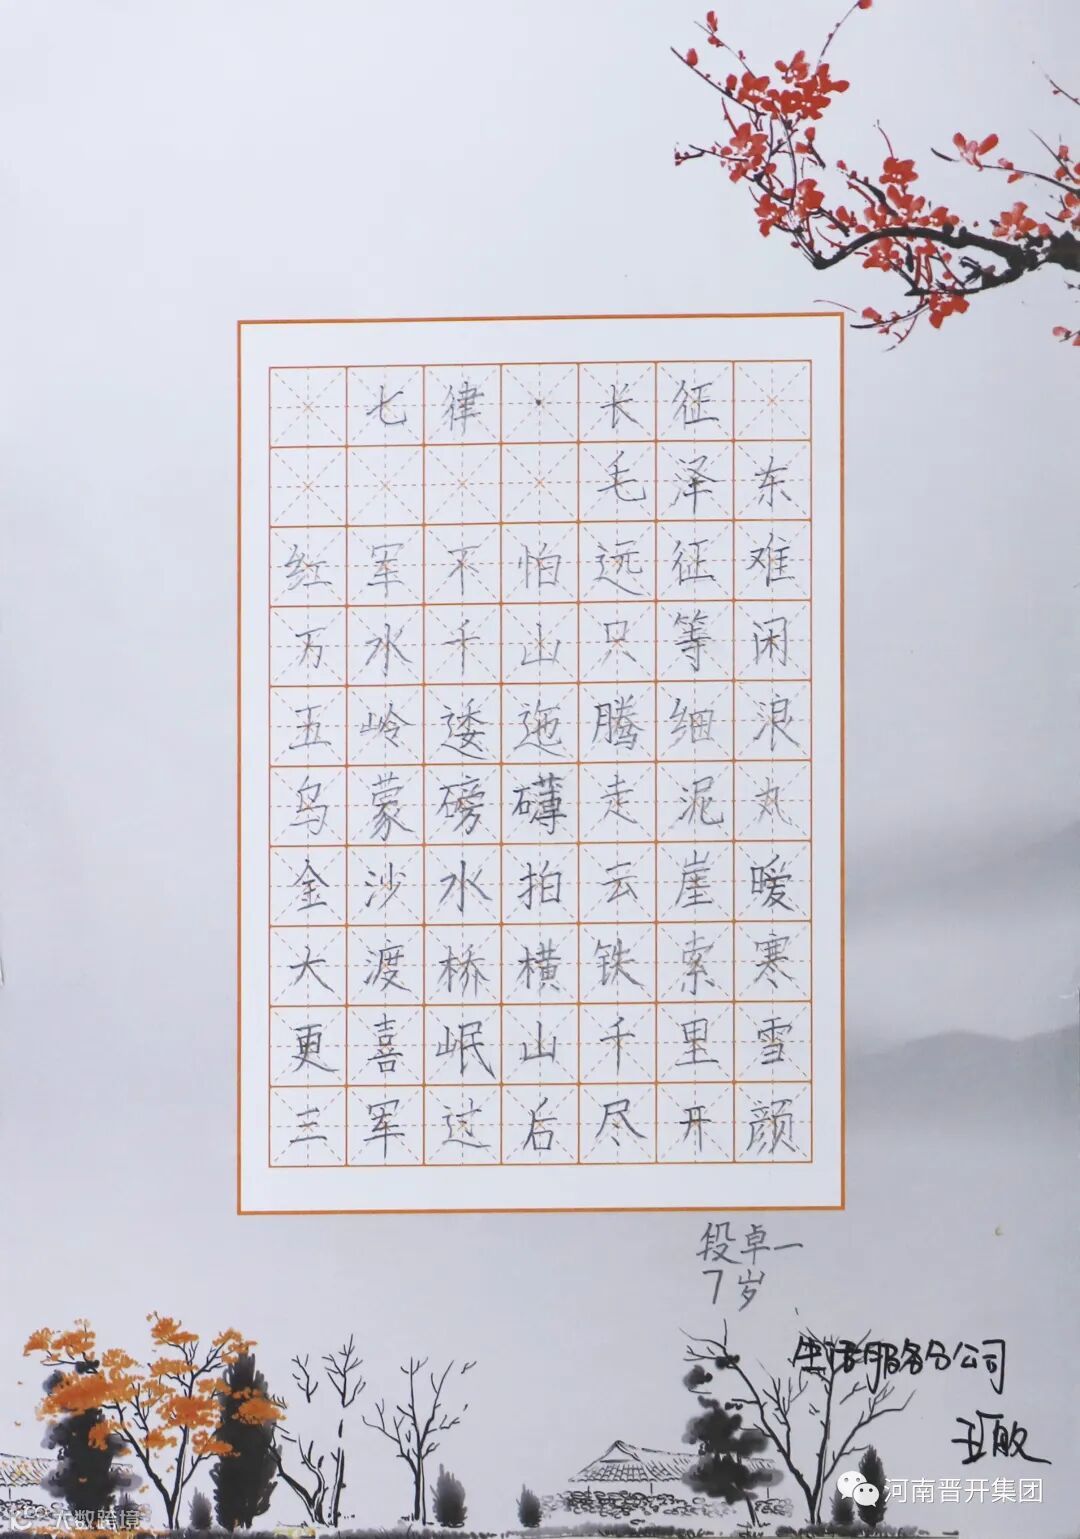 七律·长征
毛泽东
红军不怕远征难
万水千山只等闲
五岭逶迤腾细浪
乌蒙磅礴走泥丸
金沙水拍云崖暖
大渡桥横铁索寒
更喜岷山千里雪
三军过后尽开颜
段卓一
7岁
生活服务分公司
河南晋开集团
大数跨境